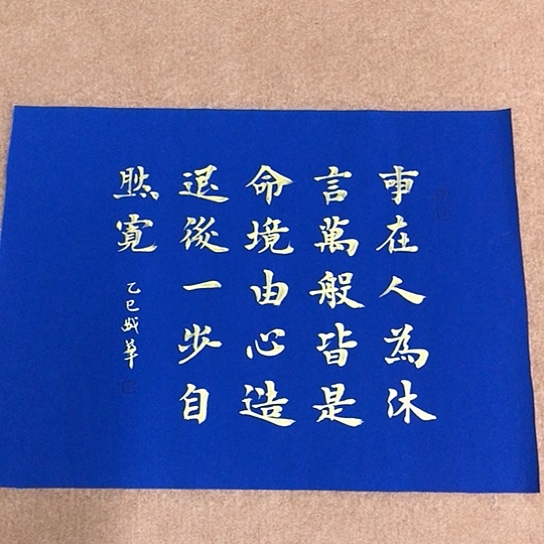 事在人為休
言萬般皆是
命境由心造
退後一步自
然寬
乙巳